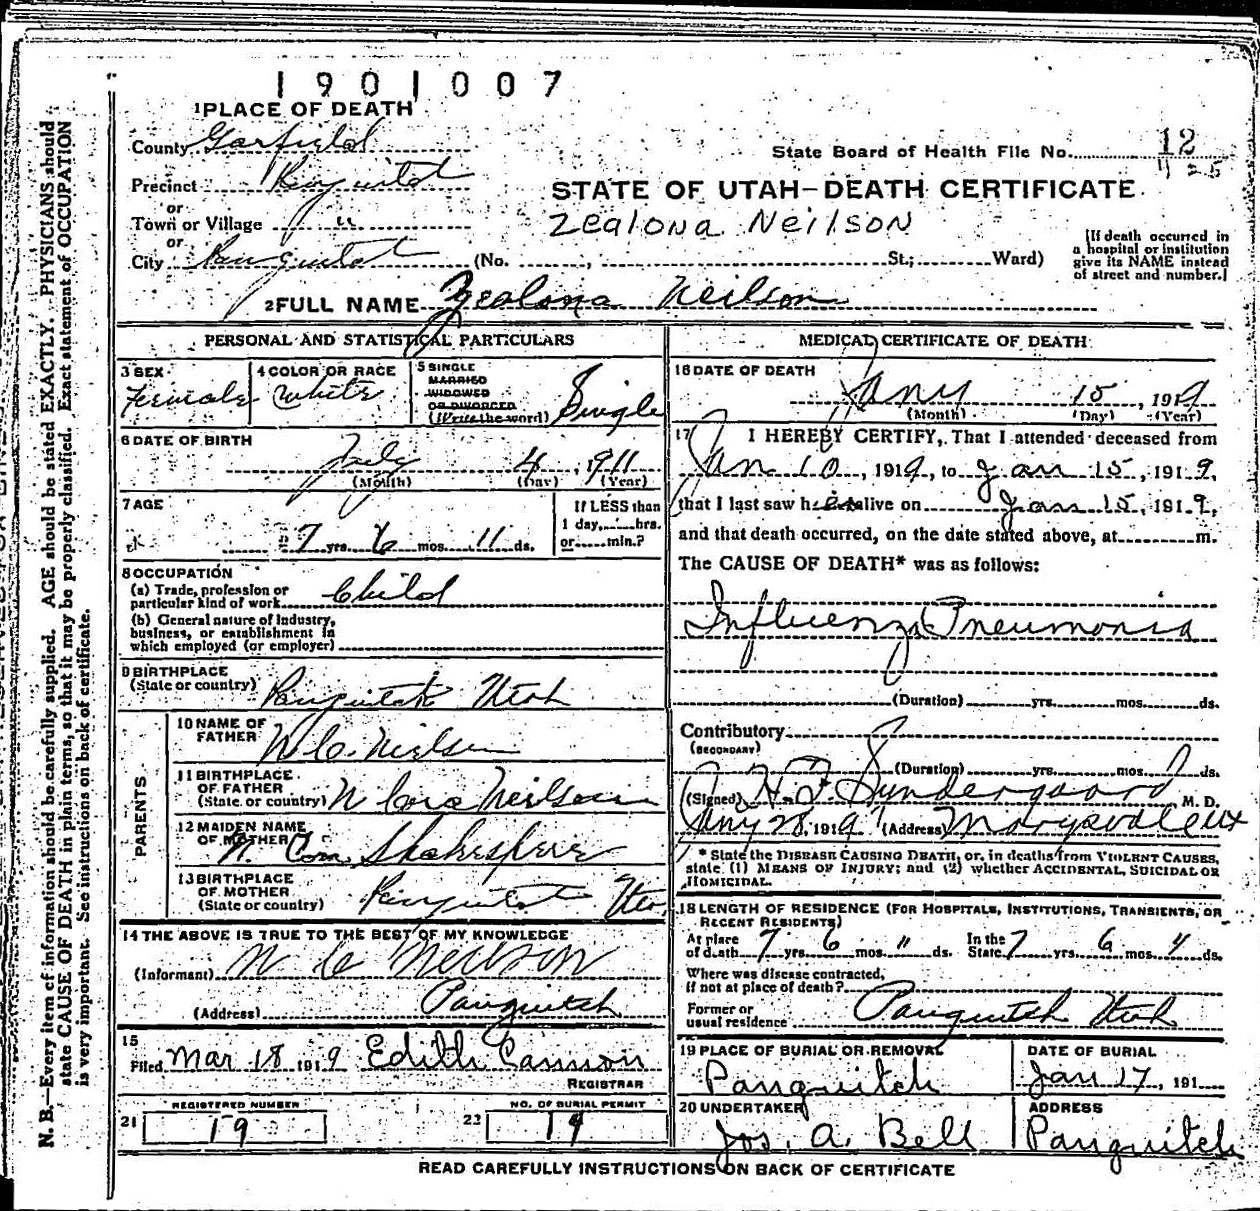 1901007
1 PLACE OF DEATH
County Garfield
State Board of Health File No. 12
425
Precinct Panguitch
STATE OF UTAH—DEATH CERTIFICATE
or
Town or Village "
Zealona Neilson
or
City Panguitch (No. , St.; Ward)
[If death occurred in
a hospital or institution
give its NAME instead
of street and number.]
2 FULL NAME Zealona Neilson
PERSONAL AND STATISTICAL PARTICULARS
3 SEX
Female
4 COLOR OR RACE
White
5 SINGLE
MARRIED
WIDOWED
OR DIVORCED
(Write the word) Single
6 DATE OF BIRTH
July 4, 1911
(Month) (Day) (Year)
7 AGE
7 yrs. 6 mos. 11 ds.
If LESS than
1 day, hrs.
or min.?
8 OCCUPATION
(a) Trade, profession or
particular kind of work Child
(b) General nature of Industry,
business, or establishment in
which employed (or employer)
9 BIRTHPLACE
(State or country) Panguitch Utah
PARENTS
10 NAME OF
FATHER N C. Nielsen
11 BIRTHPLACE
OF FATHER
(State or country) Neilson
12 MAIDEN NAME
OF MOTHER Shakespeare
13 BIRTHPLACE
OF MOTHER
(State or country) Panguitch
14 THE ABOVE IS TRUE TO THE BEST OF MY KNOWLEDGE
(Informant) N C Neilson
(Address) Panguitch
15
Filed Mar 18 1919 Edith Cannon
REGISTRAR
REGISTERED NUMBER
21 19
NO. OF BURIAL PERMIT
22 19
MEDICAL CERTIFICATE OF DEATH
16 DATE OF DEATH
Jany 15, 1919
(Month) (Day) (Year)
17 I HEREBY CERTIFY, That I attended deceased from
Jan 10, 1919, to Jan 15, 1919,
that I last saw her alive on Jan 15, 1919,
and that death occurred, on the date stated above, at m.
The CAUSE OF DEATH* was as follows:
Influenza Pneumonia
(Duration) yrs. mos. ds.
Contributory
(SECONDARY)
(Duration) yrs. mos. ds.
(Signed) H. F. Syndergaard M. D.
Jany 28, 1919 (Address) Marysvale Ut
* State the DISEASE CAUSING DEATH, or, in deaths from VIOLENT CAUSES,
state (1) MEANS OF INJURY; and (2) whether ACCIDENTAL, SUICIDAL OR
HOMICIDAL.
18 LENGTH OF RESIDENCE (FOR HOSPITALS, INSTITUTIONS, TRANSIENTS, OR
RECENT RESIDENTS)
At place
of death 7 yrs. 6 mos. 11 ds.
In the
State 7 yrs. 6 mos. ds.
Where was disease contracted,
if not at place of death?
Former or
usual residence Panguitch Utah
19 PLACE OF BURIAL OR REMOVAL
Panguitch
DATE OF BURIAL
Jan 17, 191
20 UNDERTAKER
Jos. A. Bell
ADDRESS
Panguitch
READ CAREFULLY INSTRUCTIONS ON BACK OF CERTIFICATE
N. B.—Every item of information should be carefully supplied. AGE should be stated EXACTLY. PHYSICIANS should
state CAUSE OF DEATH in plain terms, so that it may be properly classified. Exact statement of OCCUPATION
is very important. See instructions on back of certificate.